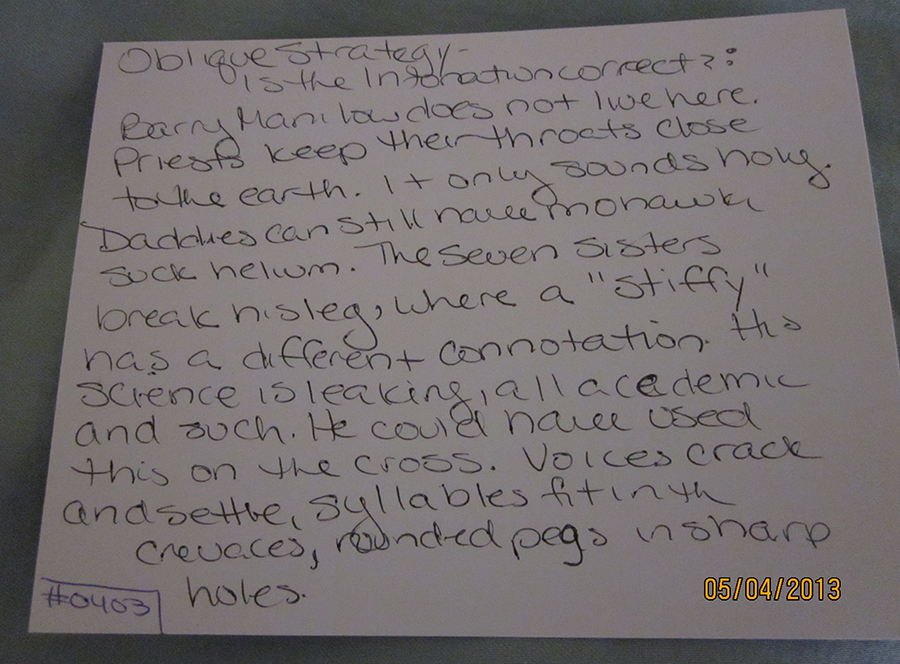 Oblique Strategy-
Is the Intonation correct?:
Barry Manilow does not live here.
Priests keep their throats close
to the earth. It only sounds holy.
Daddies can still have mohawks
suck helium. The seven sisters
break his leg, where a "stiffy"
has a different connotation. His
science is leaking, all academic
and such. He could have used
this on the cross. Voices crack
and settle, syllables fit in th
crevaces, rounded pegs in sharp
holes.
#0403
05/04/2013